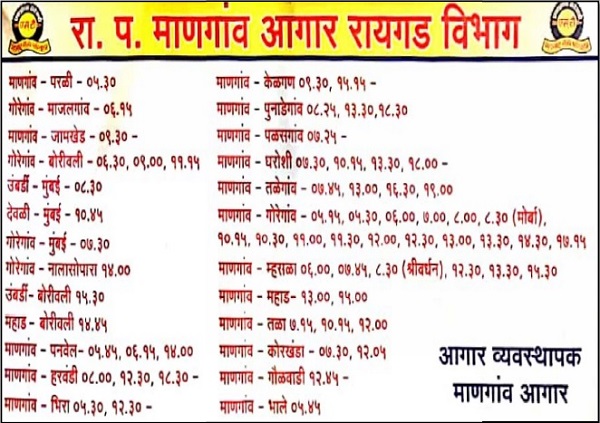 रा. प. माणगांव आगार रायगड विभाग
माणगांव - परळी - ०५.३०
गोरेगांव - माजलगांव - ०६.१५
माणगांव - जामखेड - ०९.३० -
गोरेगांव - बोरीवली - ०६.३०, ०९.००, ११.१५
उंबर्डी - मुंबई - ०८.३०
देवळी - मुंबई - १०.४५
गोरेगांव - मुंबई - ०७.३०
गोरेगांव - नालासोपारा १४.००
उंबर्डी- बोरीवली १५.३०
महाड - बोरीवली १४.४५
माणगांव - पनवेल- ०५.४५, ०६.१५, १४.००
माणगांव - हरवंडी ०८.००, १२.३०, १८.३० -
माणगांव - भिरा ०५.३०, १२.३० -
माणगांव - केळगण ०९.३०, १५.१५ -
माणगांव - पुनाडेगांव ०८.२५, १३.३०,१८.३०
माणगांव - पळसगांव ०७.२५ -
माणगांव - घरोशी ०७.३०, १०.१५, १३.३०, १८.०० -
माणगांव - तळेगांव - ०७.४५, १३.००, १६.३०, १९.००
माणगांव - गोरेगांव - ०५.१५, ०५.३०, ०६.००, ७.००, ८.००, ८.३० (मोर्बा),
१०.१५, १०.३०, ११.००, ११.३०, १२.००, १२.३०, १३.००, १३.३०, १४.३०, १७.१५
माणगांव - म्हसळा ०६.००, ०७.४५, ८.३० (श्रीवर्धन), १२.३०, १३.३०, १५.३०
माणगांव - महाड- १३.००, १५.००
माणगांव - तळा ७.१५, १०.१५, १२.००
माणगांव - कोरखंडा - ०७.३०, १२.०५
माणगांव - गौळवाडी १२.४५ -
माणगांव - भाले ०५.४५
आगार व्यवस्थापक
माणगांव आगार